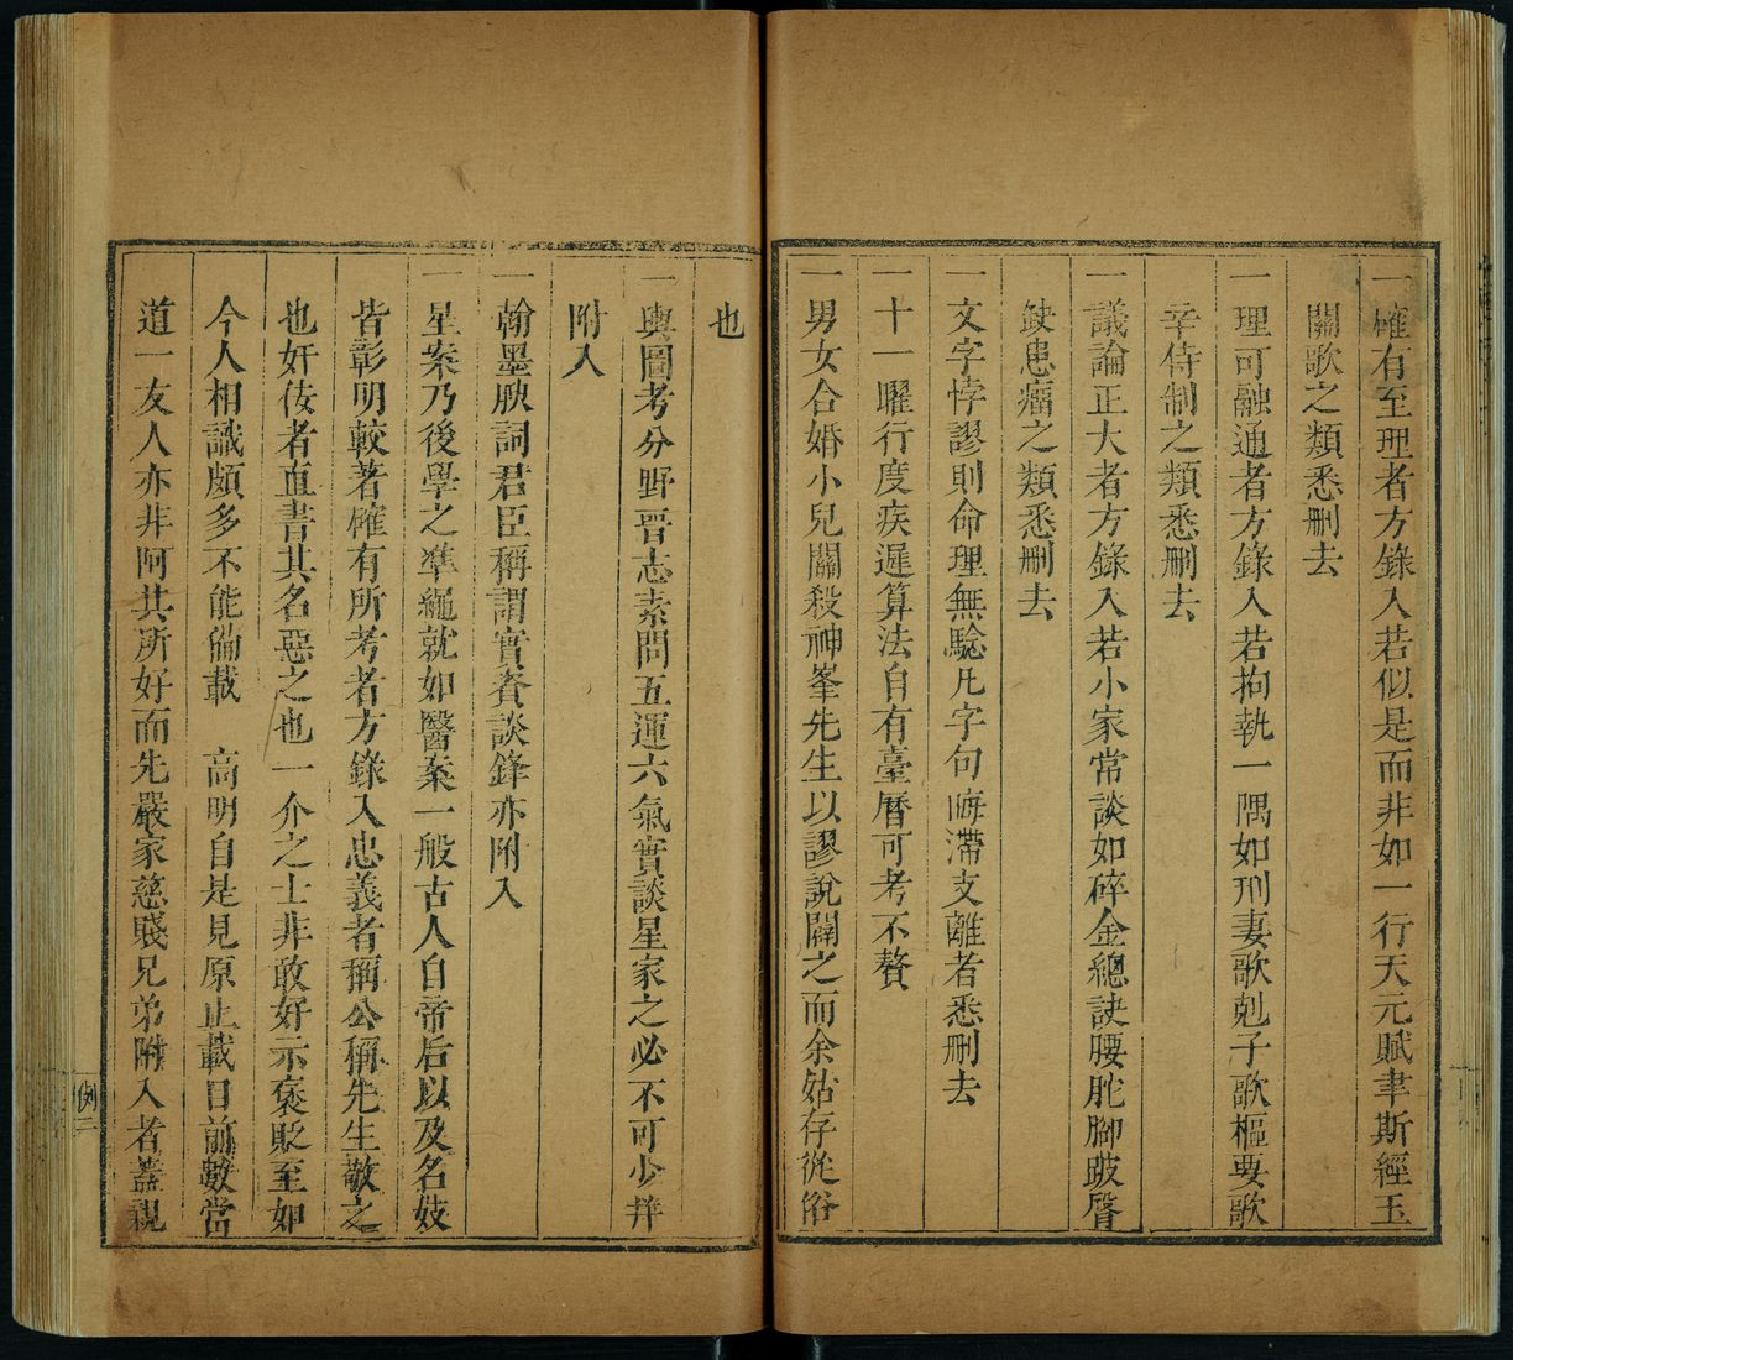 一確有至理者方錄入若似是而非如一行天元賦聿斯經玉
關歌之類悉刪去
一理可融通者方錄入若拘執一隅如刑妻歌剋子歌樞要歌
辛侍制之類悉刪去
一議論正大者方錄入若小家常談如碎金總訣腰駝腳跛脣
缺患瘤之類悉刪去
一文字悖謬則命理無驗凡字句晦滯支離者悉刪去
一十一曜行度疾遲算法自有臺曆可考不贅
一男女合婚小兒關殺神峯先生以謬說闢之而余姑存從俗
也
一輿圖考分野晋志素問五運六氣實談星家之必不可少并
附入
一翰墨腴詞君臣稱謂實資談鋒亦附入
一星案乃後學之準繩就如醫案一般古人自帝后以及名妓
皆彰明較著確有所考者方錄入忠義者稱公稱先生敬之
也奸佞者直書其名惡之也一介之士非敢好示褒貶至如
今人相識頗多不能備載 高明自是見原止載日前數當
道一友人亦非阿其所好而先嚴家慈賤兄弟附入者蓋親
例二